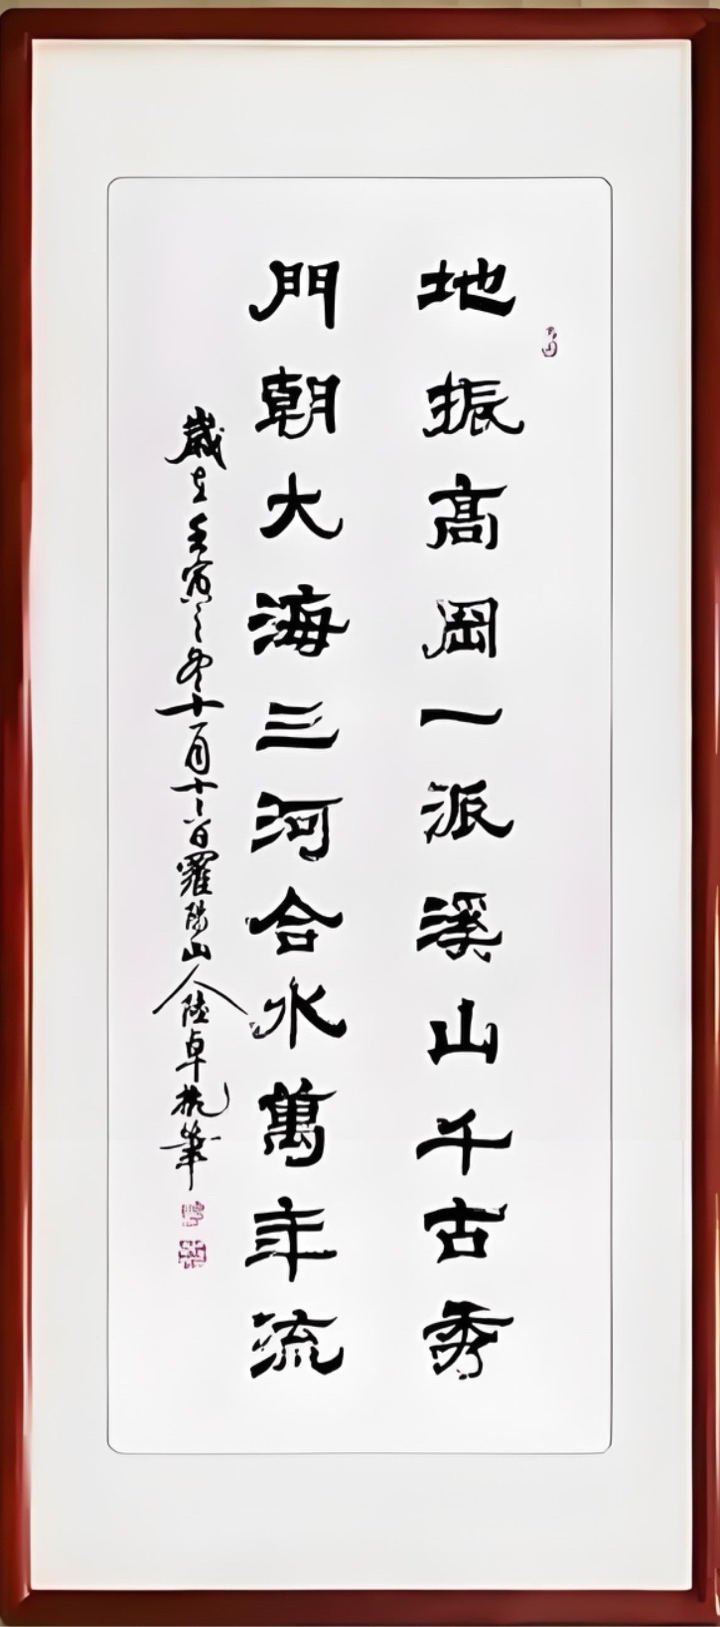 地振高岡一派溪山千古秀
門朝大海三河合水萬年流
歲在壬寅之冬十一月十二日羅陽山人陸卓振筆